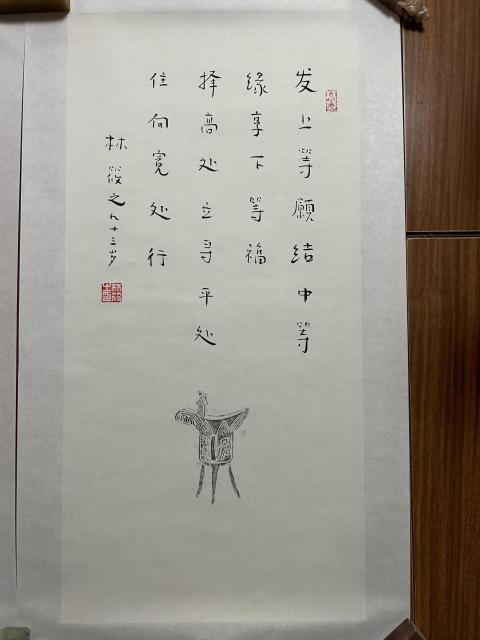 发上等愿结中等
缘享下等福
择高处立寻平处
住向宽处行
林筱之九十三岁